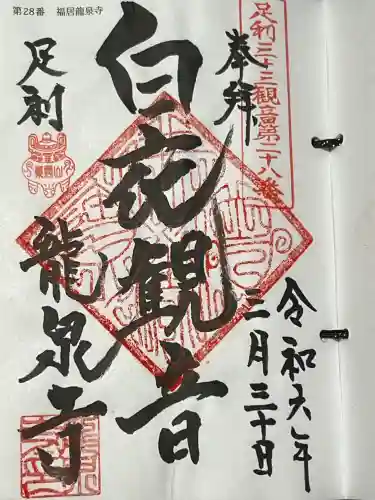 第28番　福居龍泉寺
足利三十三観音第二十八番
奉拝
令和六年
三月三十日
白衣観音
足利
龍泉寺